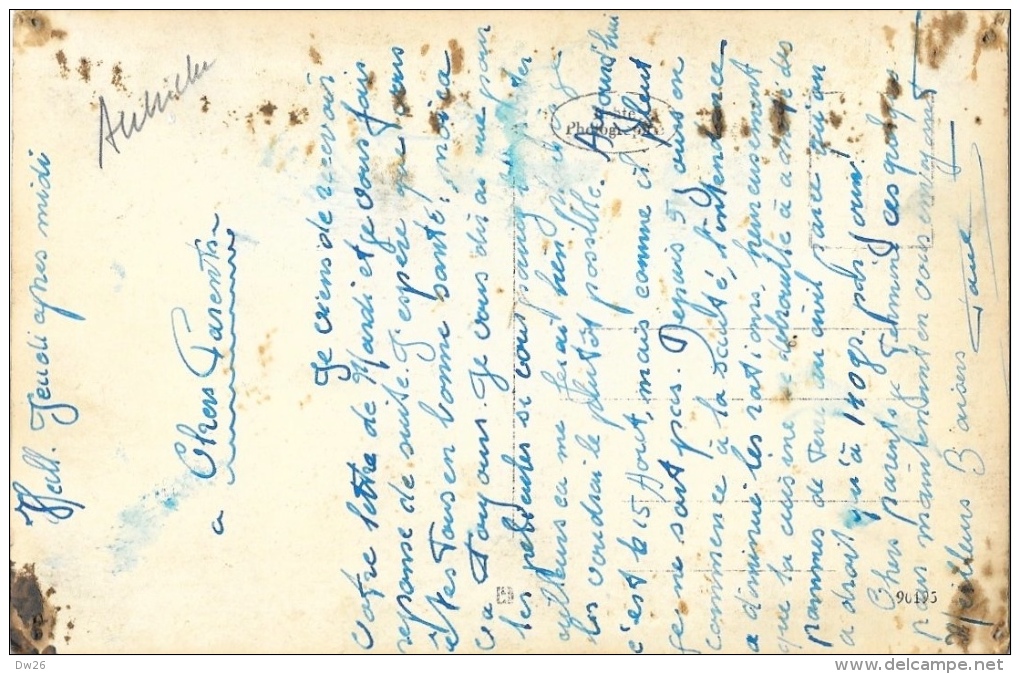 Hall. Jeudi apres midi
a Chers Parents
Je viens de recevoir
votre lettre de Mardi et ge vous fais
reponse de suite. J'espère que vous
êtes tous en bonne santé; moi ca
va Toujours. Je vous dirai que pour
les si vous pouvez
ailleurs ca me ferai bien plaisir ge
les voudrai le plutôt possible. Aujourd'hui
c'est le 15 Aout, mais comme il pleut
ge ne sort pas. Depuis 5 jours on
commence à la sauté, l'intendance
a diminué les rations, heureusement
que la cuisine se debrouille à avoir des
pommes de Terre au civil parce qu'on
a droit qu'à 110gr. par jour!
Chers parents ge Termine ces quelques
pour maintenant en vous envoyant
Meilleurs Baisers
Photographie
90195
Dw26
www.delcampe.net